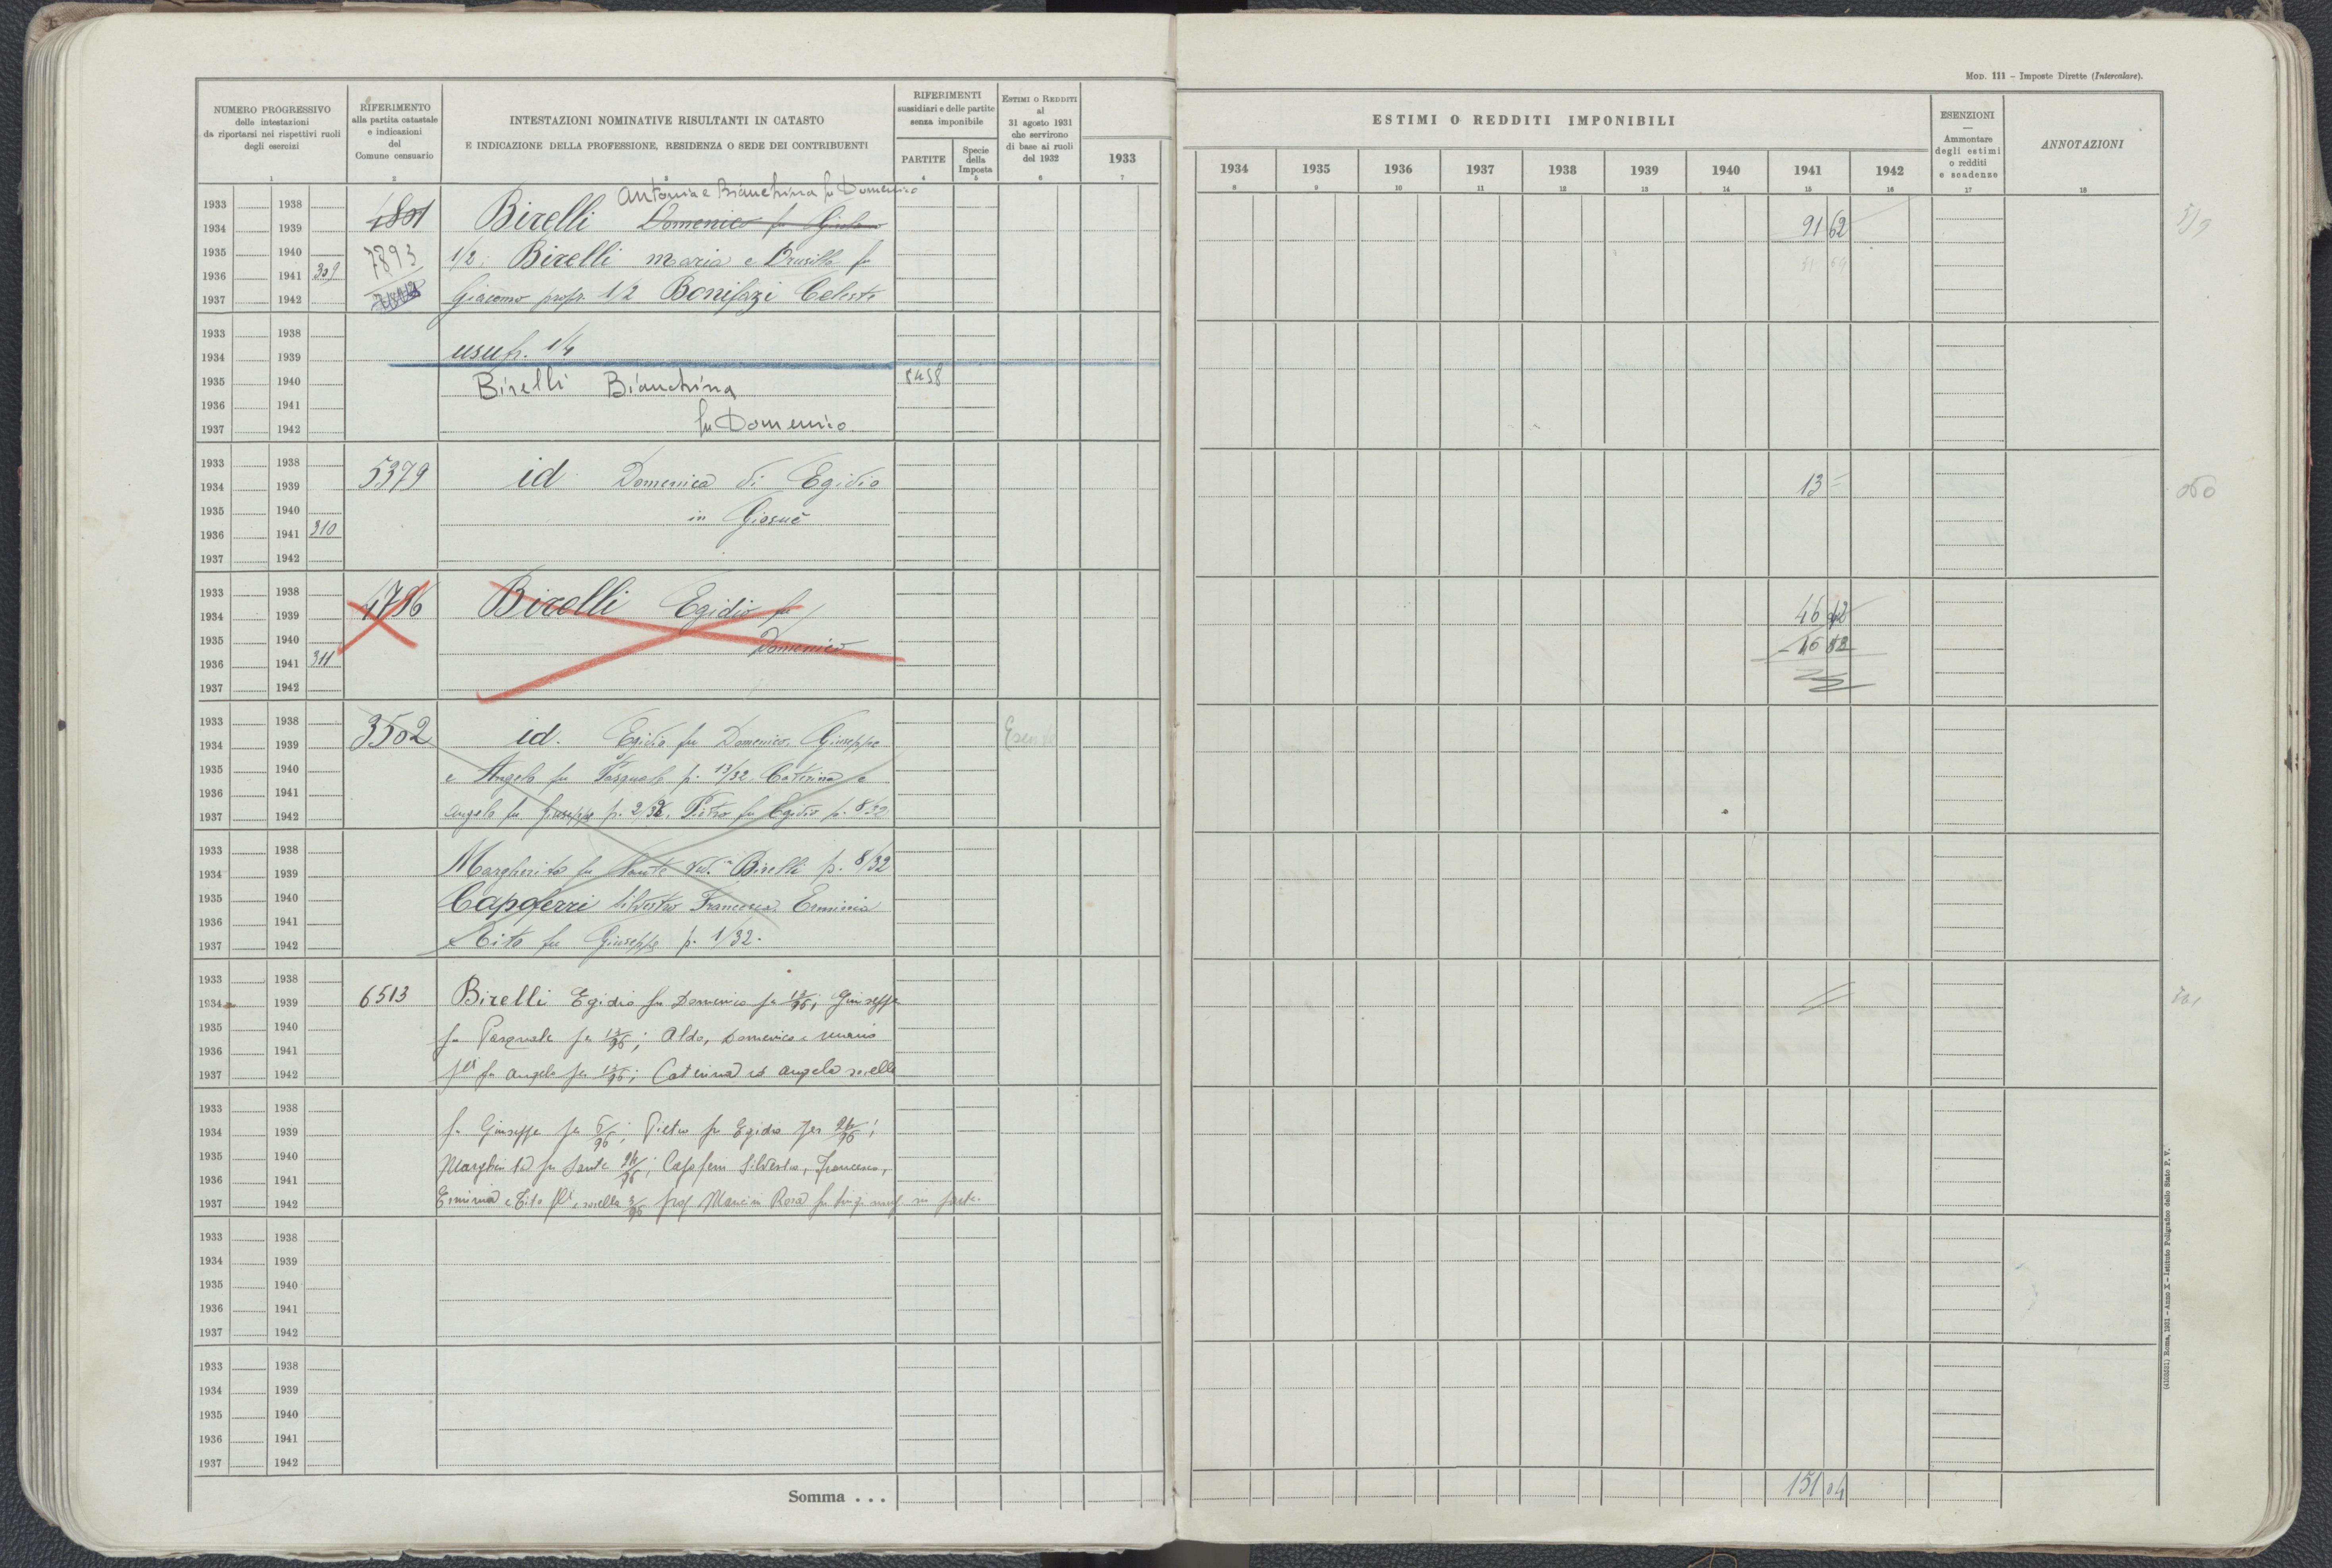 MOD. 111 – Imposte Dirette (Intercalare).
NUMERO PROGRESSIVO
delle intestazioni
da riportarsi nei rispettivi ruoli
degli esercizi
RIFERIMENTO
alla partita catastale
e indicazioni
del
Comune censuario
INTESTAZIONI NOMINATIVE RISULTANTI IN CATASTO
E INDICAZIONE DELLA PROFESSIONE, RESIDENZA O SEDE DEI CONTRIBUENTI
RIFERIMENTI
sussidiari e delle partite
senza imponibile
PARTITE
Specie
della
Imposta
ESTIMI O REDDITI
al
31 agosto 1931
che servirono
di base ai ruoli
del 1932
ESTIMI O REDDITI IMPONIBILI
1933 1934 1935 1936 1937 1938 1939 1940 1941 1942
ESENZIONI
—
Ammontare
degli estimi
o redditi
e scadenze
ANNOTAZIONI
1 2 3 4 5 6 7 8 9 10 11 12 13 14 15 16 17 18
Antonia e Bianchina fu Domenico
1933 1938
1934 1939 4801 Birelli Domenico fu 91 62
1935 1940 7893 1/2; Birelli Maria e Drusilla fu
1936 1941 309
1937 1942 Giacomo propr. 1/2 Bonifazi Celeste
1933 1938
1934 1939 usufr. 1/4
1935 1940 Birelli Bianchina 8458
1936 1941
1937 1942 fu Domenico
1933 1938
1934 1939 5379 id. Domenica di Egidio 13 =
1935 1940 in Giosuè
1936 1941 310
1937 1942
1933 1938
1934 1939 4786 Birelli Egidio fu 46 42
1935 1940 Domenico
1936 1941 311
1937 1942
1933 1938
1934 1939 3502 id. Egidio fu Domenico, Giuseppe Esente
1935 1940 e Angelo fu Pasquale p. 13/32 Caterina e
1936 1941
1937 1942 Angela fu Giuseppe p. 2/32, Pietro fu Egidio p. 8/32
1933 1938
1934 1939 Margherita fu Sante Ved. Birelli p. 8/32
1935 1940 Capoferri Silvestro Francesca, Erminia
1936 1941
1937 1942 e Tito fu Giuseppe p. 1/32.
1933 1938
1934 1939 6513 Birelli Egidio fu Domenico per 13/96; Giuseppe
1935 1940 fu Pasquale per 13/96; Aldo, Domenico e Mario
1936 1941
1937 1942 fu Angelo per 13/96; Caterina ed Angela sorelle
1933 1938
1934 1939 fu Giuseppe per 6/96; Pietro fu Egidio per 24/96;
1935 1940 Margherita fu Sante 24/96; Capoferri Silvestro, Francesco,
1936 1941
1937 1942 Erminia e Tito e sorella 3/96 prop. Mancini Rosa fu Luigi usuf. in parte.
1933 1938
1934 1939
1935 1940
1936 1941
1937 1942
1933 1938
1934 1939
1935 1940
1936 1941
1937 1942
Somma . . . 151 04
(4103531) Roma, 1931 – Anno X – Istituto Poligrafico dello Stato P. V.